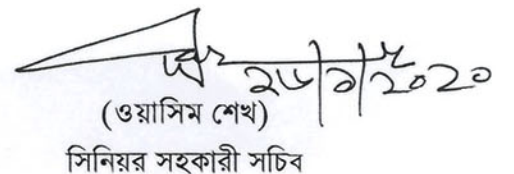 ২৮/৯/২০২০
(ওয়াসিম শেখ)
সিনিয়র সহকারী সচিব